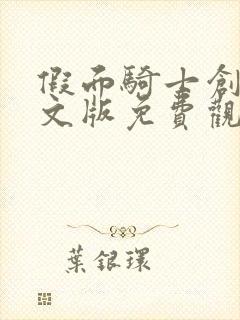 假面騎士創
文版免費觀
葉銀環